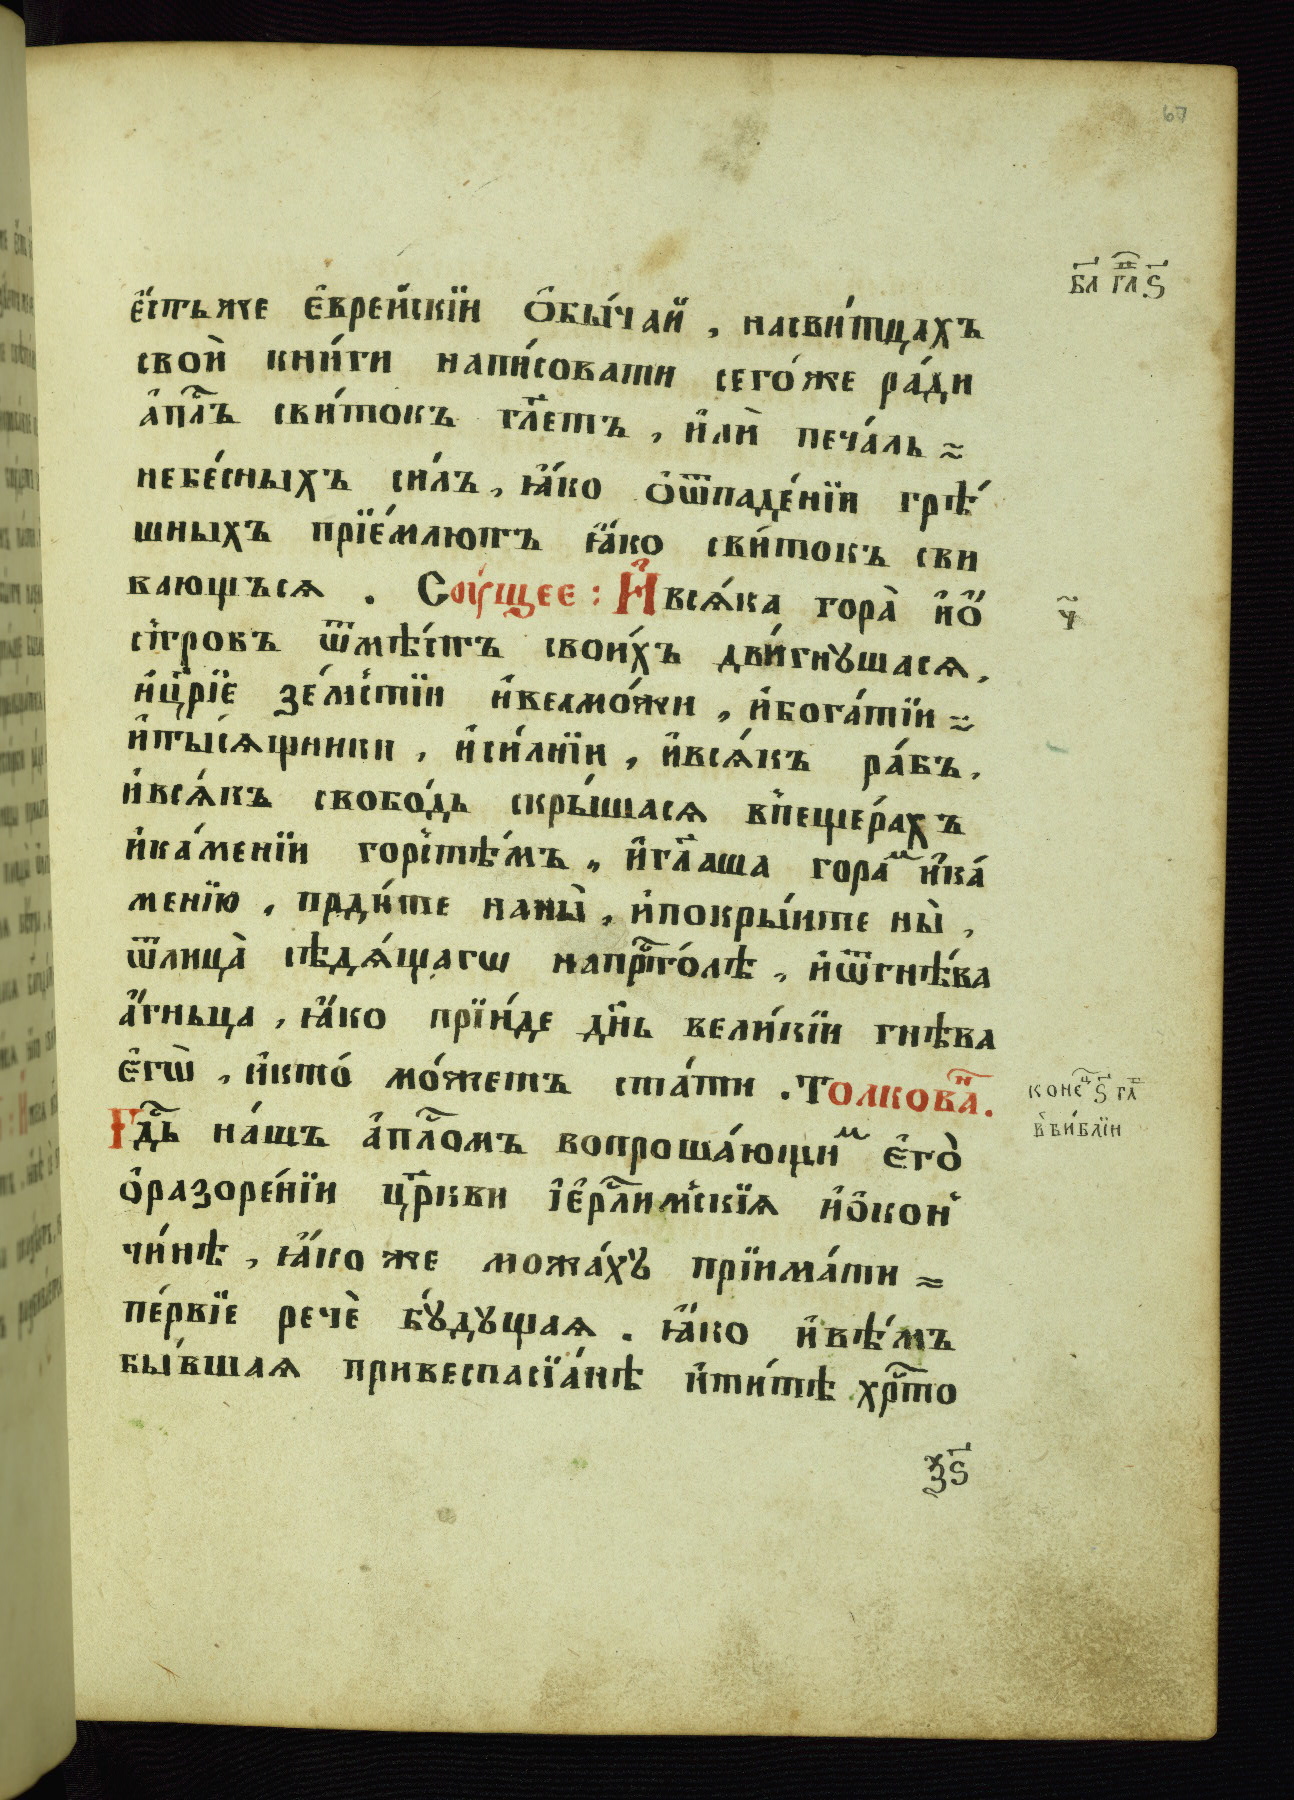 67
бл҃ гл҃ ѕ҃
є҆́стьже є҆вре́йскїи ѻ҆бы́чай , насви́тцахъ
свои̾ кни́ги напи́совати сего́же ра́ди
а҆пⷭ҇лъ сви́токъ гл҃етъ , и҆лѝ печа́ль ≈
небе́сныхъ си́лъ , ꙗ҆́ко ѻ҆ѿпаде́нїи грѣ́
шныхъ прїе́млютъ ꙗ҆́ко сви́токъ сви
вающъся . Соу́щее : И҆всѧ́ка гора̀ и҆ѻ҆́
стровъ ѿмѣ́стъ свои́хъ дви́гнꙋшасѧ ,
и҆цр҃їе зе́мстїи и҆велмо́жи , и҆бога́тїи ≈
и҆ты́сѧщники , и҆си́лнїи , и҆всѧ́къ ра́бъ ,
и҆всѧ́къ свобо́дь скры́шасѧ впеще́рахъ
и҆ка́менїи го́рстѣмъ , и҆гл҃аша гораⷨ и҆ка́
менїю , пади́те наны̀ , и҆покры́ите ны̀ ,
ѿлица̀ сѣдѧ́щагѡ напрⷭ҇то́лѣ , и҆ѿгнѣ́ва
а҆́гньца , ꙗ҆́ко прїи́де дн҃ь вели́кїи гнѣ́ва
є҆гѡ̀ , и҆кто́ мо́жетъ ста́ти . Толковⷩ҇а .
конеⷰ ѕ҃ гл҃
в би́блїи
Гдⷭ҇ь на́шъ а҆пⷭ҇ломъ вопроша́ющиⷨ є҆го̀
ѻ҆разоре́нїи цр҃кви і҆є҆рⷭ҇лимскїѧ и҆ѻ҆кон
чи́нѣ , ꙗ҆́ко же можа́хꙋ прїима́ти ≈
пе́рвїе речѐ бꙋ́дꙋщаѧ . ꙗ҆́ко и҆вѣ́мъ
бы́вшаѧ привеспасїа́нѣ и҆ти́тѣ хрⷭ҇то
ѯ҃ѕ